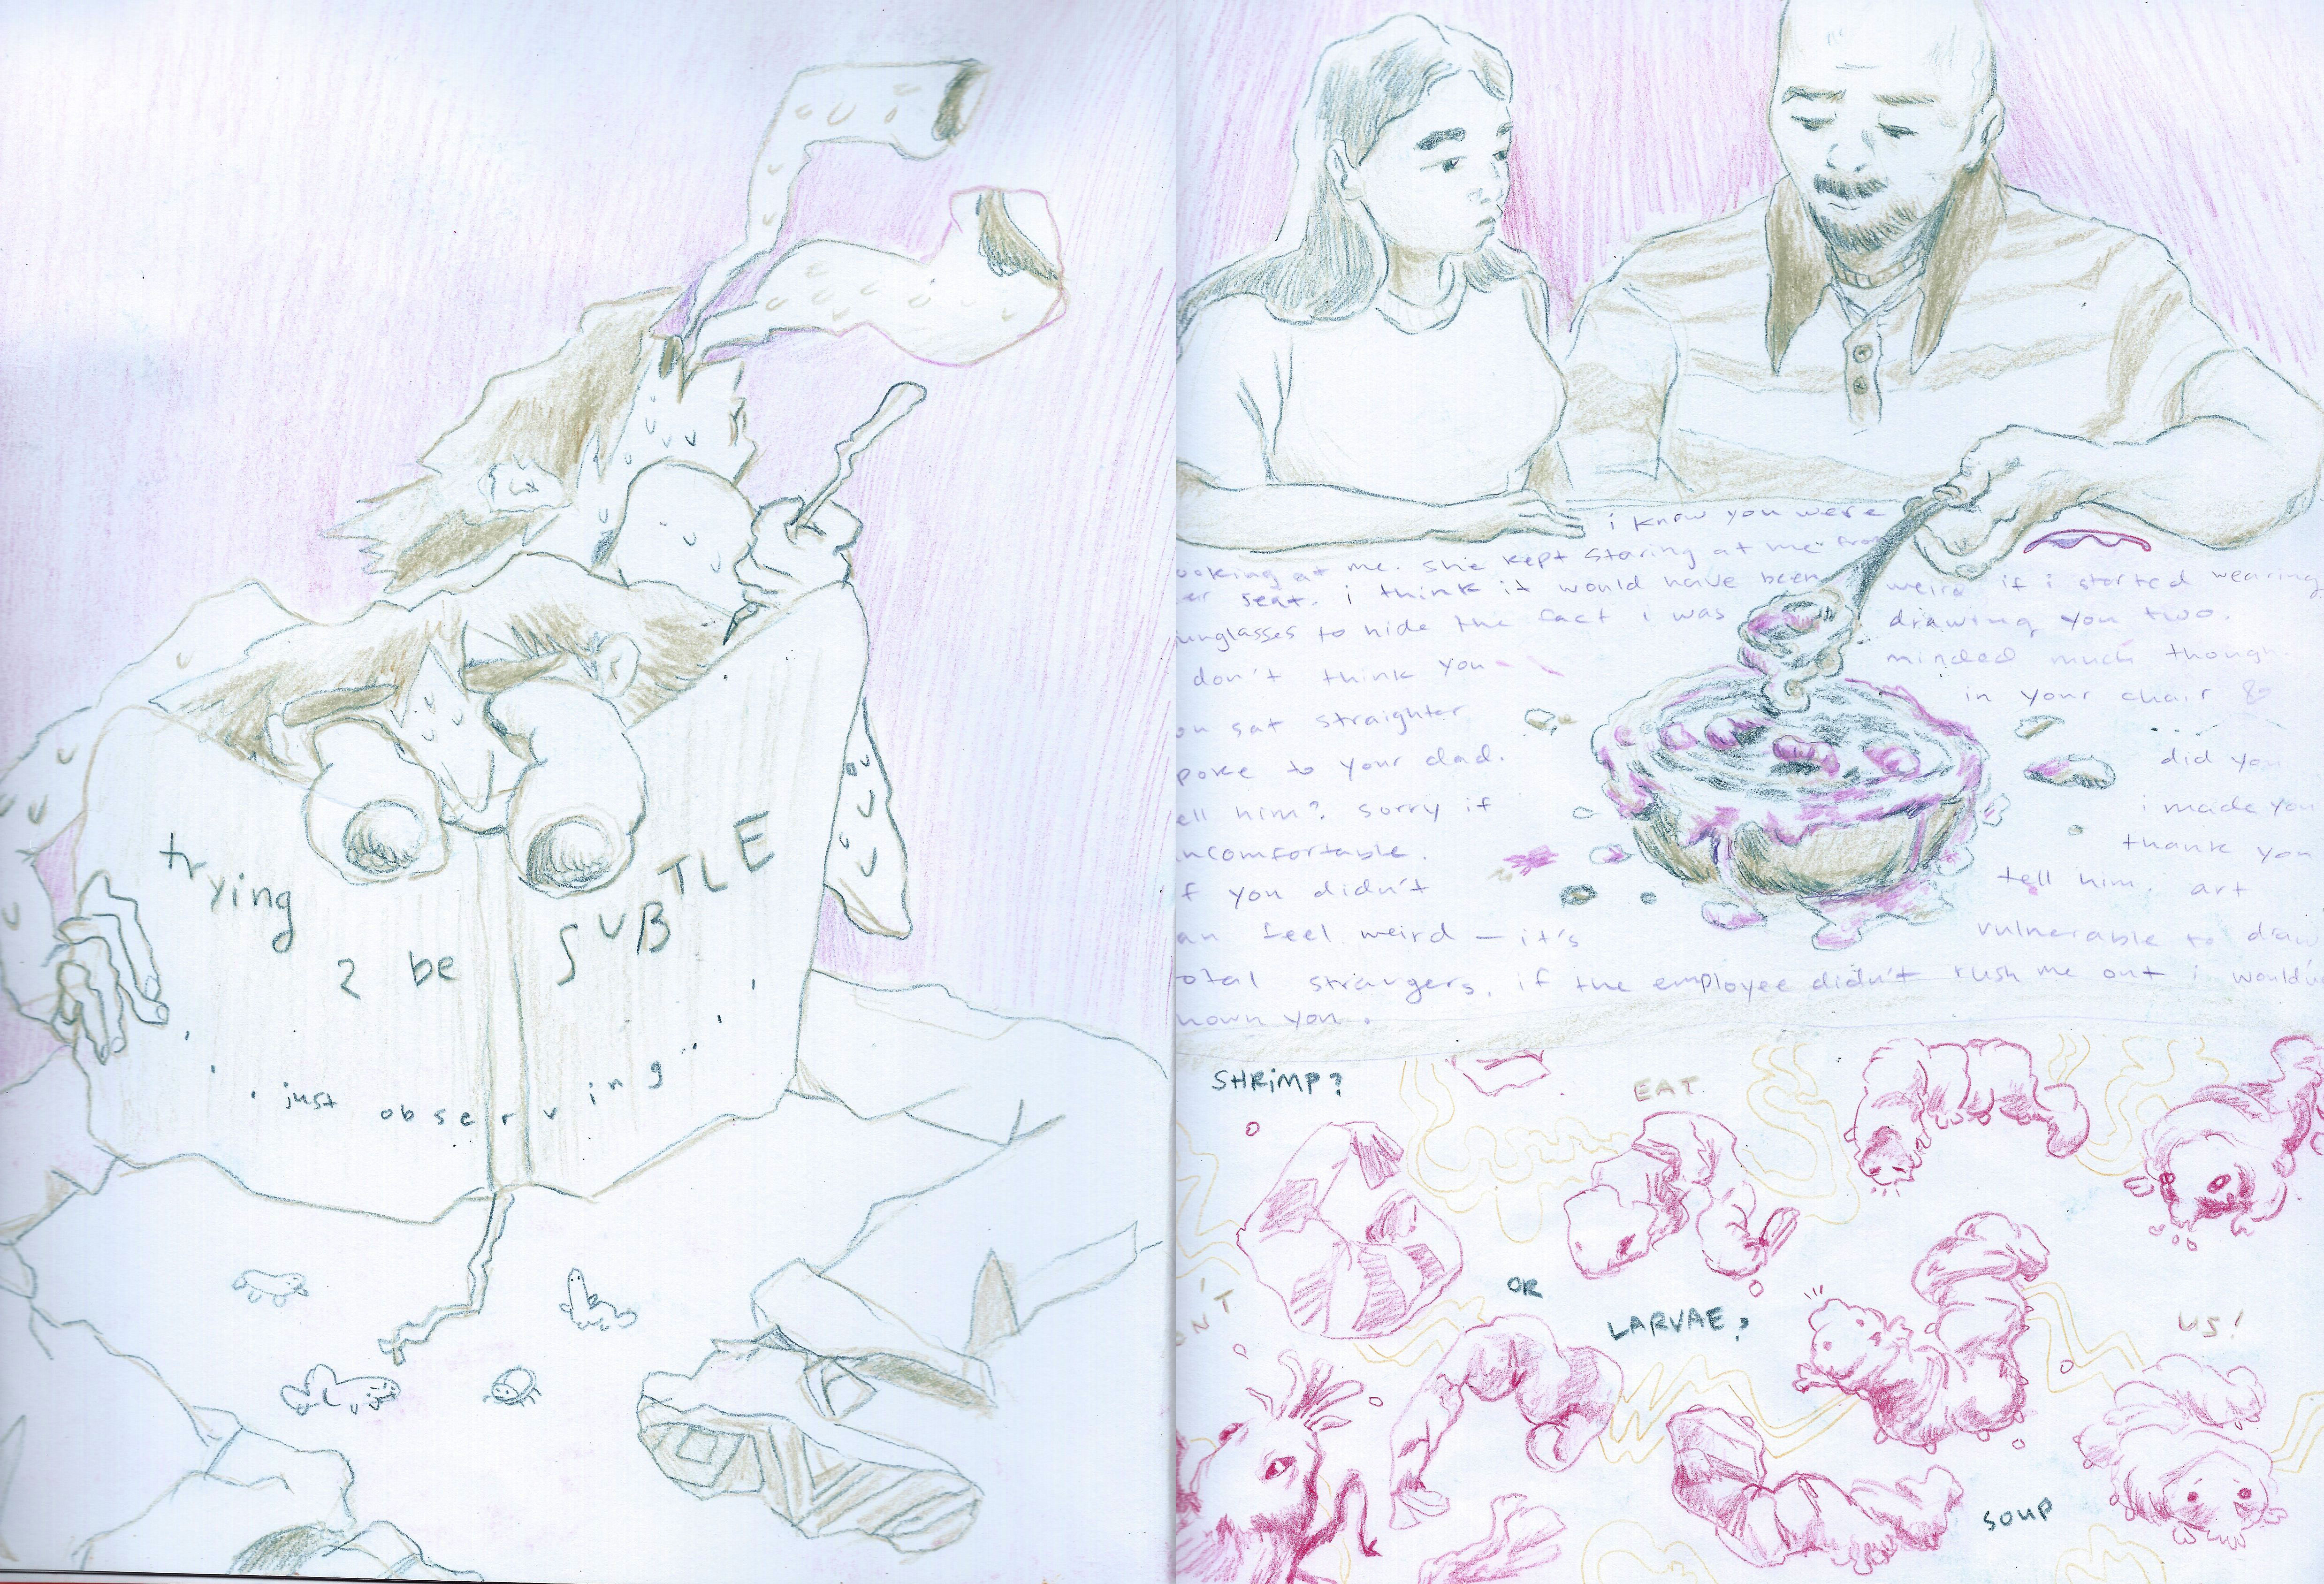 trying
2 be SUBTLE
...just observing...
i know you were
ooking at me. She kept staring at me from
er seat. i think it would have been weird if i started wearing
unglasses to hide the fact i was drawing you two.
don't think you minded much though.
ou sat straighter in your chair &
poke to your dad. ... did you
ell him? sorry if i made you
ncomfortable. thank you
f you didn't tell him. art
an feel weird — it's vulnerable to draw
otal strangers. if the employee didn't rush me out i would'v
hown you.
SHRiMP?
EAT
OR
LARVAE?
ON'T
US!
SOUP